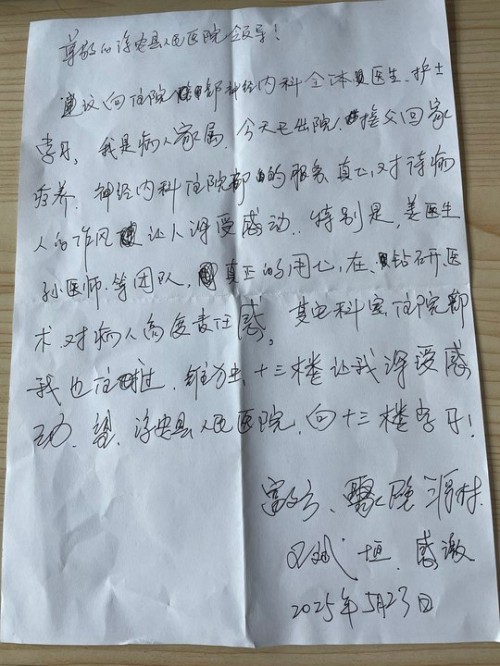 尊敬的淳安县人民医院领导！
建议向住院部神经内科全体医生、护士
学习，我是病人家属，今天已出院，接父回家
疗养，神经内科住院部的服务真心对待病
人的作风让人深受感动，特别是，姜医生
孙医师等团队，真正的用心，在钻研医
术，对病人高度责任感，其它科室住院部
我也住过，唯独十三楼让我深受感
动，望，淳安县人民医院，向十三楼学习！
富文乡
感激
2025年5月23日